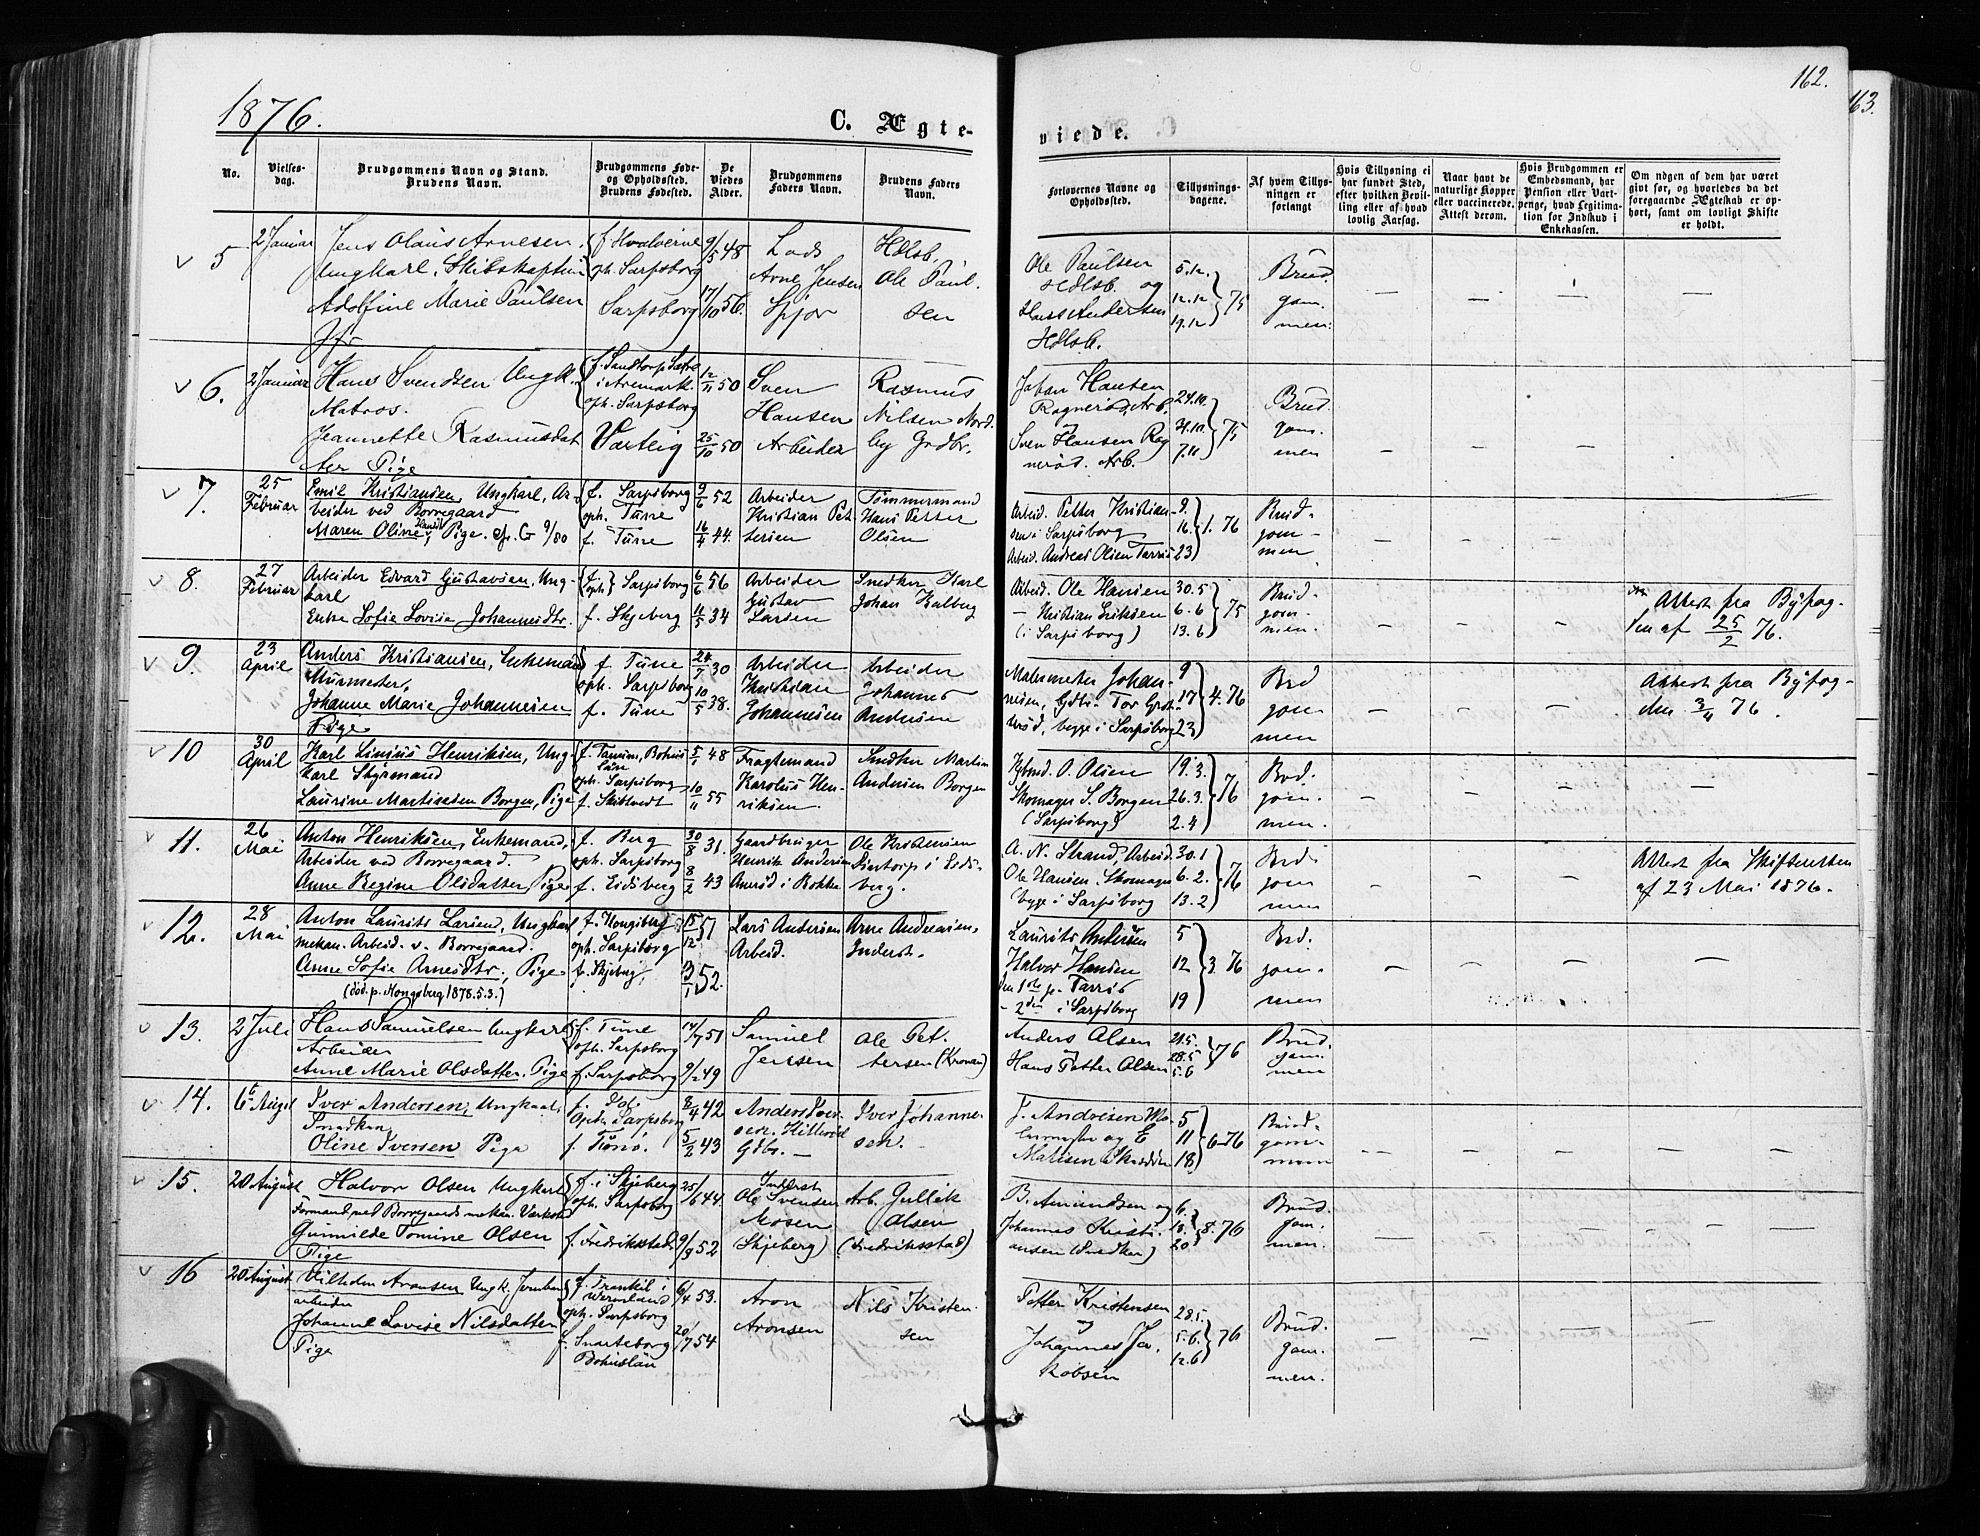 162.
163.
1876.
C. Ægte-
viede.
No.
Vielses-
dag.
Brudgommens Navn og Stand.
Brudens Navn.
Brudgommens Føde-
og Opholdssted.
Brudens Fødested.
De
Viedes
Alder.
Brudgommens
Faders Navn.
Brudens Faders
Navn.
Forlovernes Navne og
Opholdssted.
Tillysnings-
dagene.
Af hvem Tillys-
ningen er
forlangt
Hvis Tillysning ei
har fundet Sted,
efter hvilken Bevil-
ling eller af hvad
lovlig Aarsag.
Naar havt de
naturlige Kopper
eller vaccinerede.
Attest derom.
Hvis Brudgommen er
Embedsmand, har
Pension eller Vart-
penge, hvad Legitima-
tion for Indskud i
Enkekassen.
Om nogen af dem har været
givt før, og hvorledes da det
foregaaende Ægteskab er op-
hørt, samt om lovligt Skifte
er holdt.
5
2 Januar
Jens Olaus Arnesen.
Ungkarl. Skibskaptein
Adolfine Marie Paulsen
Jfr
f. Hvaløerne
oph. Sarpsborg
Sarpsborg
9/5 48
17/10 56.
Lods
Arne Jensen
Spjær
Hdlsb.
Ole Paul.
sen
Ole Paulsen
Hdlsb. og
Hans Andersen
Hdlsb.
5.12.
12.12
19.12
75
Brud.
gom.
men.
6.
2 Januar
Hans Svendsen Ungk.
Matros.
Jeannette Rasmusdat
ter Pige
i Aremark.
oph. Sarpsborg
Varteig
12/11 50
25/10 50
Sven
Hansen
Arbeider
Rasmus
Nilsen Nord.
by Grdbr.
Johan Hansen
Ragnerød, Arb.
Sven Hansen Rag
nerød. Arb.
24.10.
31.10.
7.11
75
Brud.
gom.
men
7.
25
Februar
Emil Kristiansen, Ungkarl, Ar-
beider ved Borregaard
Maren Oline Hansd., Pige. cfr. G 9/80
f. Sarpsborg
oph. Tune
f. Tune
9/6 52
16/4 44.
Arbeider
Kristian Pet
tersen
Tømmermand
Hans Petter
Olsen
Arbeid. Petter Kristian-
sen i Sarpsborg
Arbeid. Andreas Olsen Tarris
9.
16.
23
1. 76
Brud-
gom-
men
8.
27
Februar
Arbeider Edvard Gustavsen, Ung-
karl
Enke Sofie Lovise Johannesdtr.
Sarpsborg
f. Skjeberg
6/6 56
11/5 34
Arbeider
Gustav
Larsen
Snedker Karl
Johan Kalberg
Arbeid. Ole Hansen
— Kristian Eriksen
(i Sarpsborg)
30.5
6.6
13.6
75
Brud-
gom
men.
Attest fra Byfog-
den af 25/2 76.
9.
23
April
Anders Kristiansen, Enkemand
Murmester,
Johanne Marie Johannesen
Pige
f. Tune
oph. Sarpsborg
f. Tune
24/7 30
10/5 38.
Arbeider
Kristian
Johannesen
Arbeider
Johannes
Andersen
Malermester Johan-
nesen, Gdbr. Tor Grot-
terød, begge i Sarpsborg
9
17
23
4. 76
Brd
gom
men
Attest fra Byfog-
den 3/4 76.
10
30
April
Karl Linius Henriksen, Ung
karl Styrmand
Laurine Martinsen Borgen, Pige
f. Tanum, Bohus
län
oph. Sarpsborg
f. Skibtvedt
5/1 48
10/11 55
Fragtemand
Karolus Hen-
riksen.
Snedker Martin
Andersen Borgen
O. Olsen
Skomager S. Borgen
(Sarpsborg)
19.3.
26.3.
2.4
76
Brd.
gom.
men.
11.
26
Mai
Anton Henriksen, Enkemand,
Arbeider ved Borregaard.
Anne Regine Olsdatter, Pige
f. Berg
oph. Sarpsborg
f. Eidsberg
30/8 31.
8/2 43
Gaardbruger
Henrik Andersen
Aarød i Rokke
Ole Kristensen
Sintorp i Eids-
berg.
A. N. Strand, Arbeid.
Ole Hansen, Skomager
(begge i Sarpsborg
30.1
6.2.
13.2
76
Brd-
gom
men
Attest fra Skifteretten
af 23 Mai 1876.
12.
28
Mai
Anton Laurits Larsen, Ungkarl
mekan. Arbeid. v. Borregaard.
Anne Sofie Arnesdtr., Pige
(død. p. Kongsberg 1878.5.3.)
f. Kongsberg
oph. Sarpsborg
f. Skjeberg
15/12 51
13/1 52.
Lars Andersen
Arbeid.
Arne Andersen,
Inderst.
Laurits Andersen
Halvor Hansen
den 1ste p. Tarris
- 2den i Sarpsborg
5
12
19
3. 76
Brd.
gom.
men
13.
2 Juli
Hans Samuelsen Ungkarl
Arbeider
Anne Marie Olsdatter. Pige
f. Tune
oph. Sarpsborg
f. Sarpsborg
14/7 51
9/2 49
Samuel
Jensen
Ole Pet.
tersen (Kronan)
Anders Olsen
og
Hans Petter Olsen
21.5.
28.5
5.6
76
Brud.
gom.
men
14.
6te Augst
Iver Andersen, Ungkarl.
Snedker
Oline Iversen Pige
Sarpsborg
8/4 42
5/2 43
Anders Iver
sen. Hillerød
Gdbr. —
Iver Johanne-
sen.
J. Andresen Ma-
lermester og E
Matisen Skrædder
5
11
18
6-76
Brud-
gom-
men
15.
20 August
Halvor Olsen Ungkarl
Formand ved Borregaards mekan. Værksted
Gunnilde Tomine Olsen
Pige
f. i Skjeberg
oph. Sarpsborg
f. Fredriksstad
25/6 44
9/9 52
Inderst
Ole Svendsen
Mosen
(Skjeberg)
Arb. Gullik
Olsen
(Fredriksstad)
B. Amundsen og
Johannes Kristi.
ansen (Snedker)
6.
13.
20
8. 76
Brud.
gom.
men.
16
20 August
Vilhelm Aronsen Ungk. Jernban
arbeider
Johanne Lovise Nilsdatter
Pige
f. Trankil i
Wermland
oph. Sarpsborg
f. Svarteborg
Bohuslän
6/4 53.
20/7 54
Aron
Aronsen
Nils Kristen.
sen
Petter Kristensen
og
Johannes Ja.
kobsen
28.5.
5.6.
12.6
76
Brud.
gom.
men.